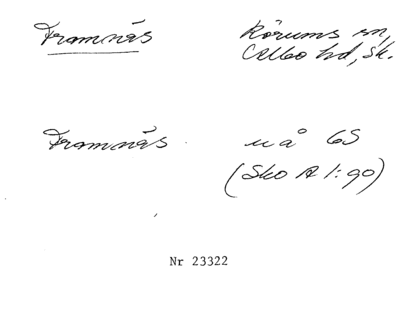 Framnäs Rörums sn,
Albo hd, Sk.
Framnäs uå GS
(Sko A 1:90)
Nr 23322